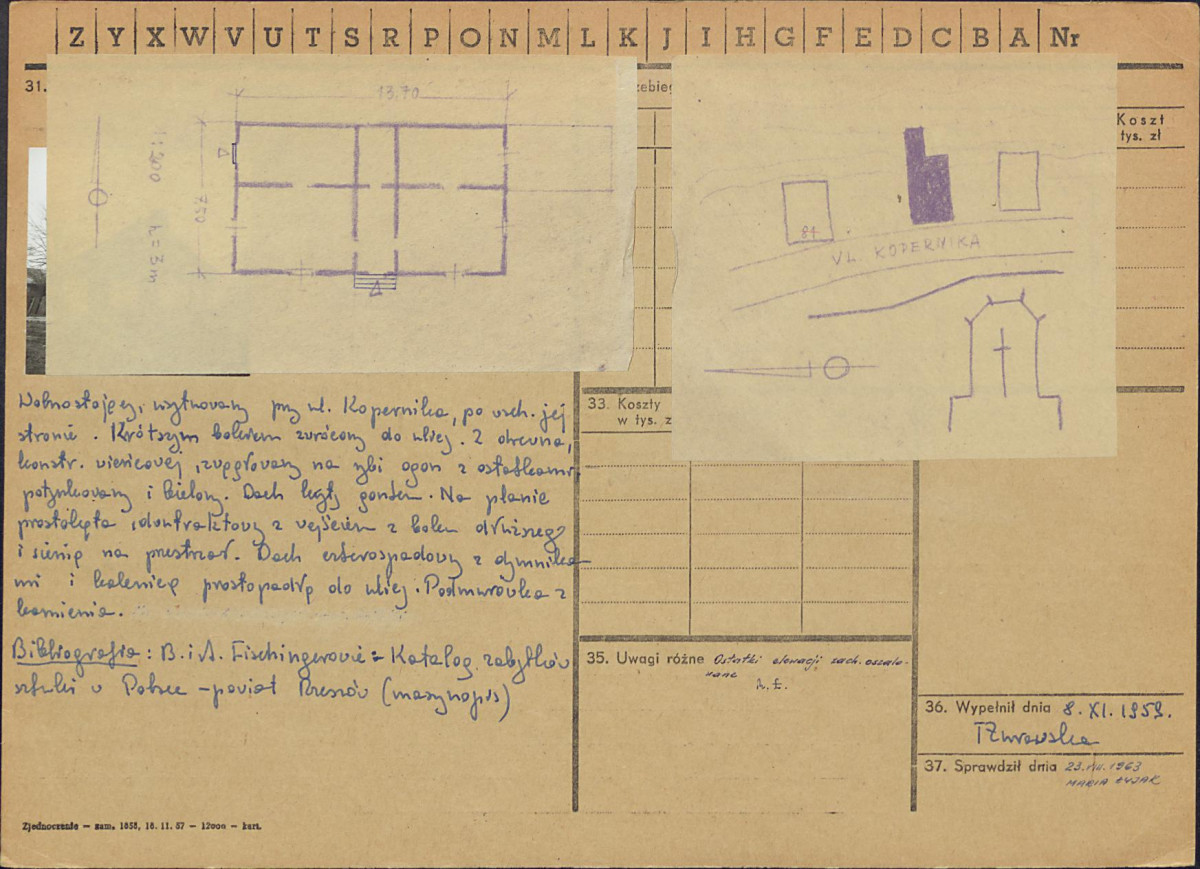 Z Y X W V U T S R P O N M L K J I H G F E D C B A Nr
31.
13.70
1:200
h = 3 m
750
zebieg
Koszt
tys. zł
84
UL. KOPERNIKA
Wolnostojący, usytuowany przy ul. Kopernika, po wsch. jej
stronie. Krótszym bokiem zwrócony do ulicy. Z drewna,
konstr. wieńcowej, zwęgłowany na rybi ogon z ostatkami,
potynkowany i bielony. Dach kryty gontem. Na planie
prostokąta, dwutraktowy z wejściem z boku dłuższego
i sienią na przestrzał. Dach czterospadowy z dymnika-
mi i kalenicą prostopadłą do ulicy. Podmurówka z
kamienia.
Bibliografia: B. i A. Fischingerowie = Katalog zabytków
sztuki w Polsce - powiat Rzeszów (maszynopis)
33. Koszty
w tys. z
35. Uwagi różne Ostatki elewacji zach. oszalo-
wane
36. Wypełnił dnia 8. XI. 1959.
TŻurowska
37. Sprawdził dnia 23. VII. 1963
MARIA ŁYJAK
Zjednoczenie — zam. 1858, 16. 11. 57 — 12000 — kart.